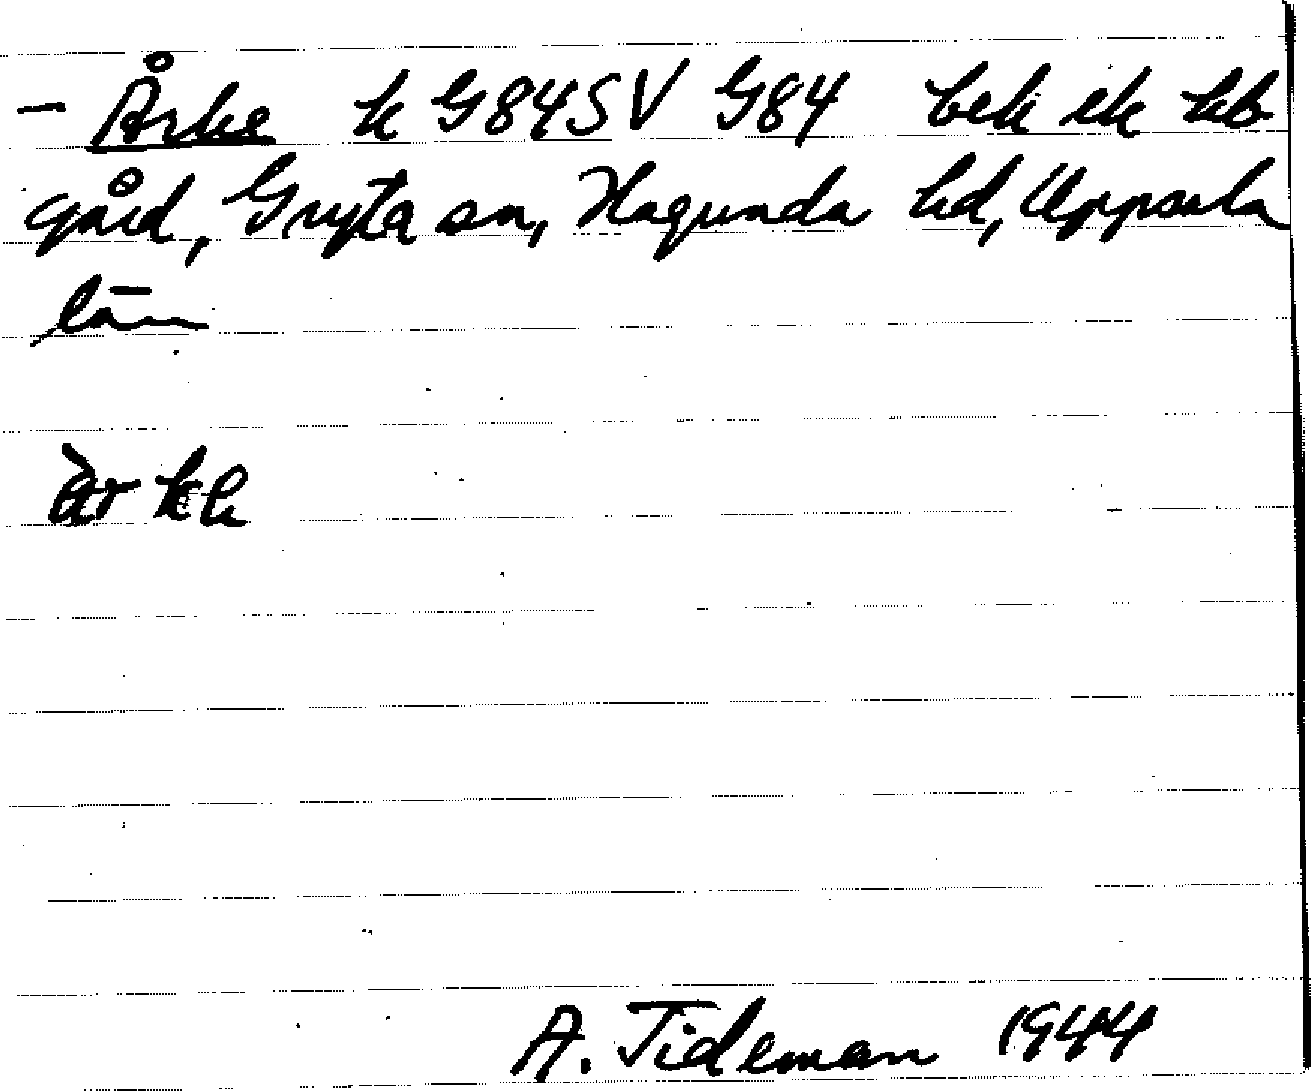 - Årke k G84SV G84 bek ek kb
gård, Gryta sn, Hagunda hd, Uppsala
län
A. Tideman 1944